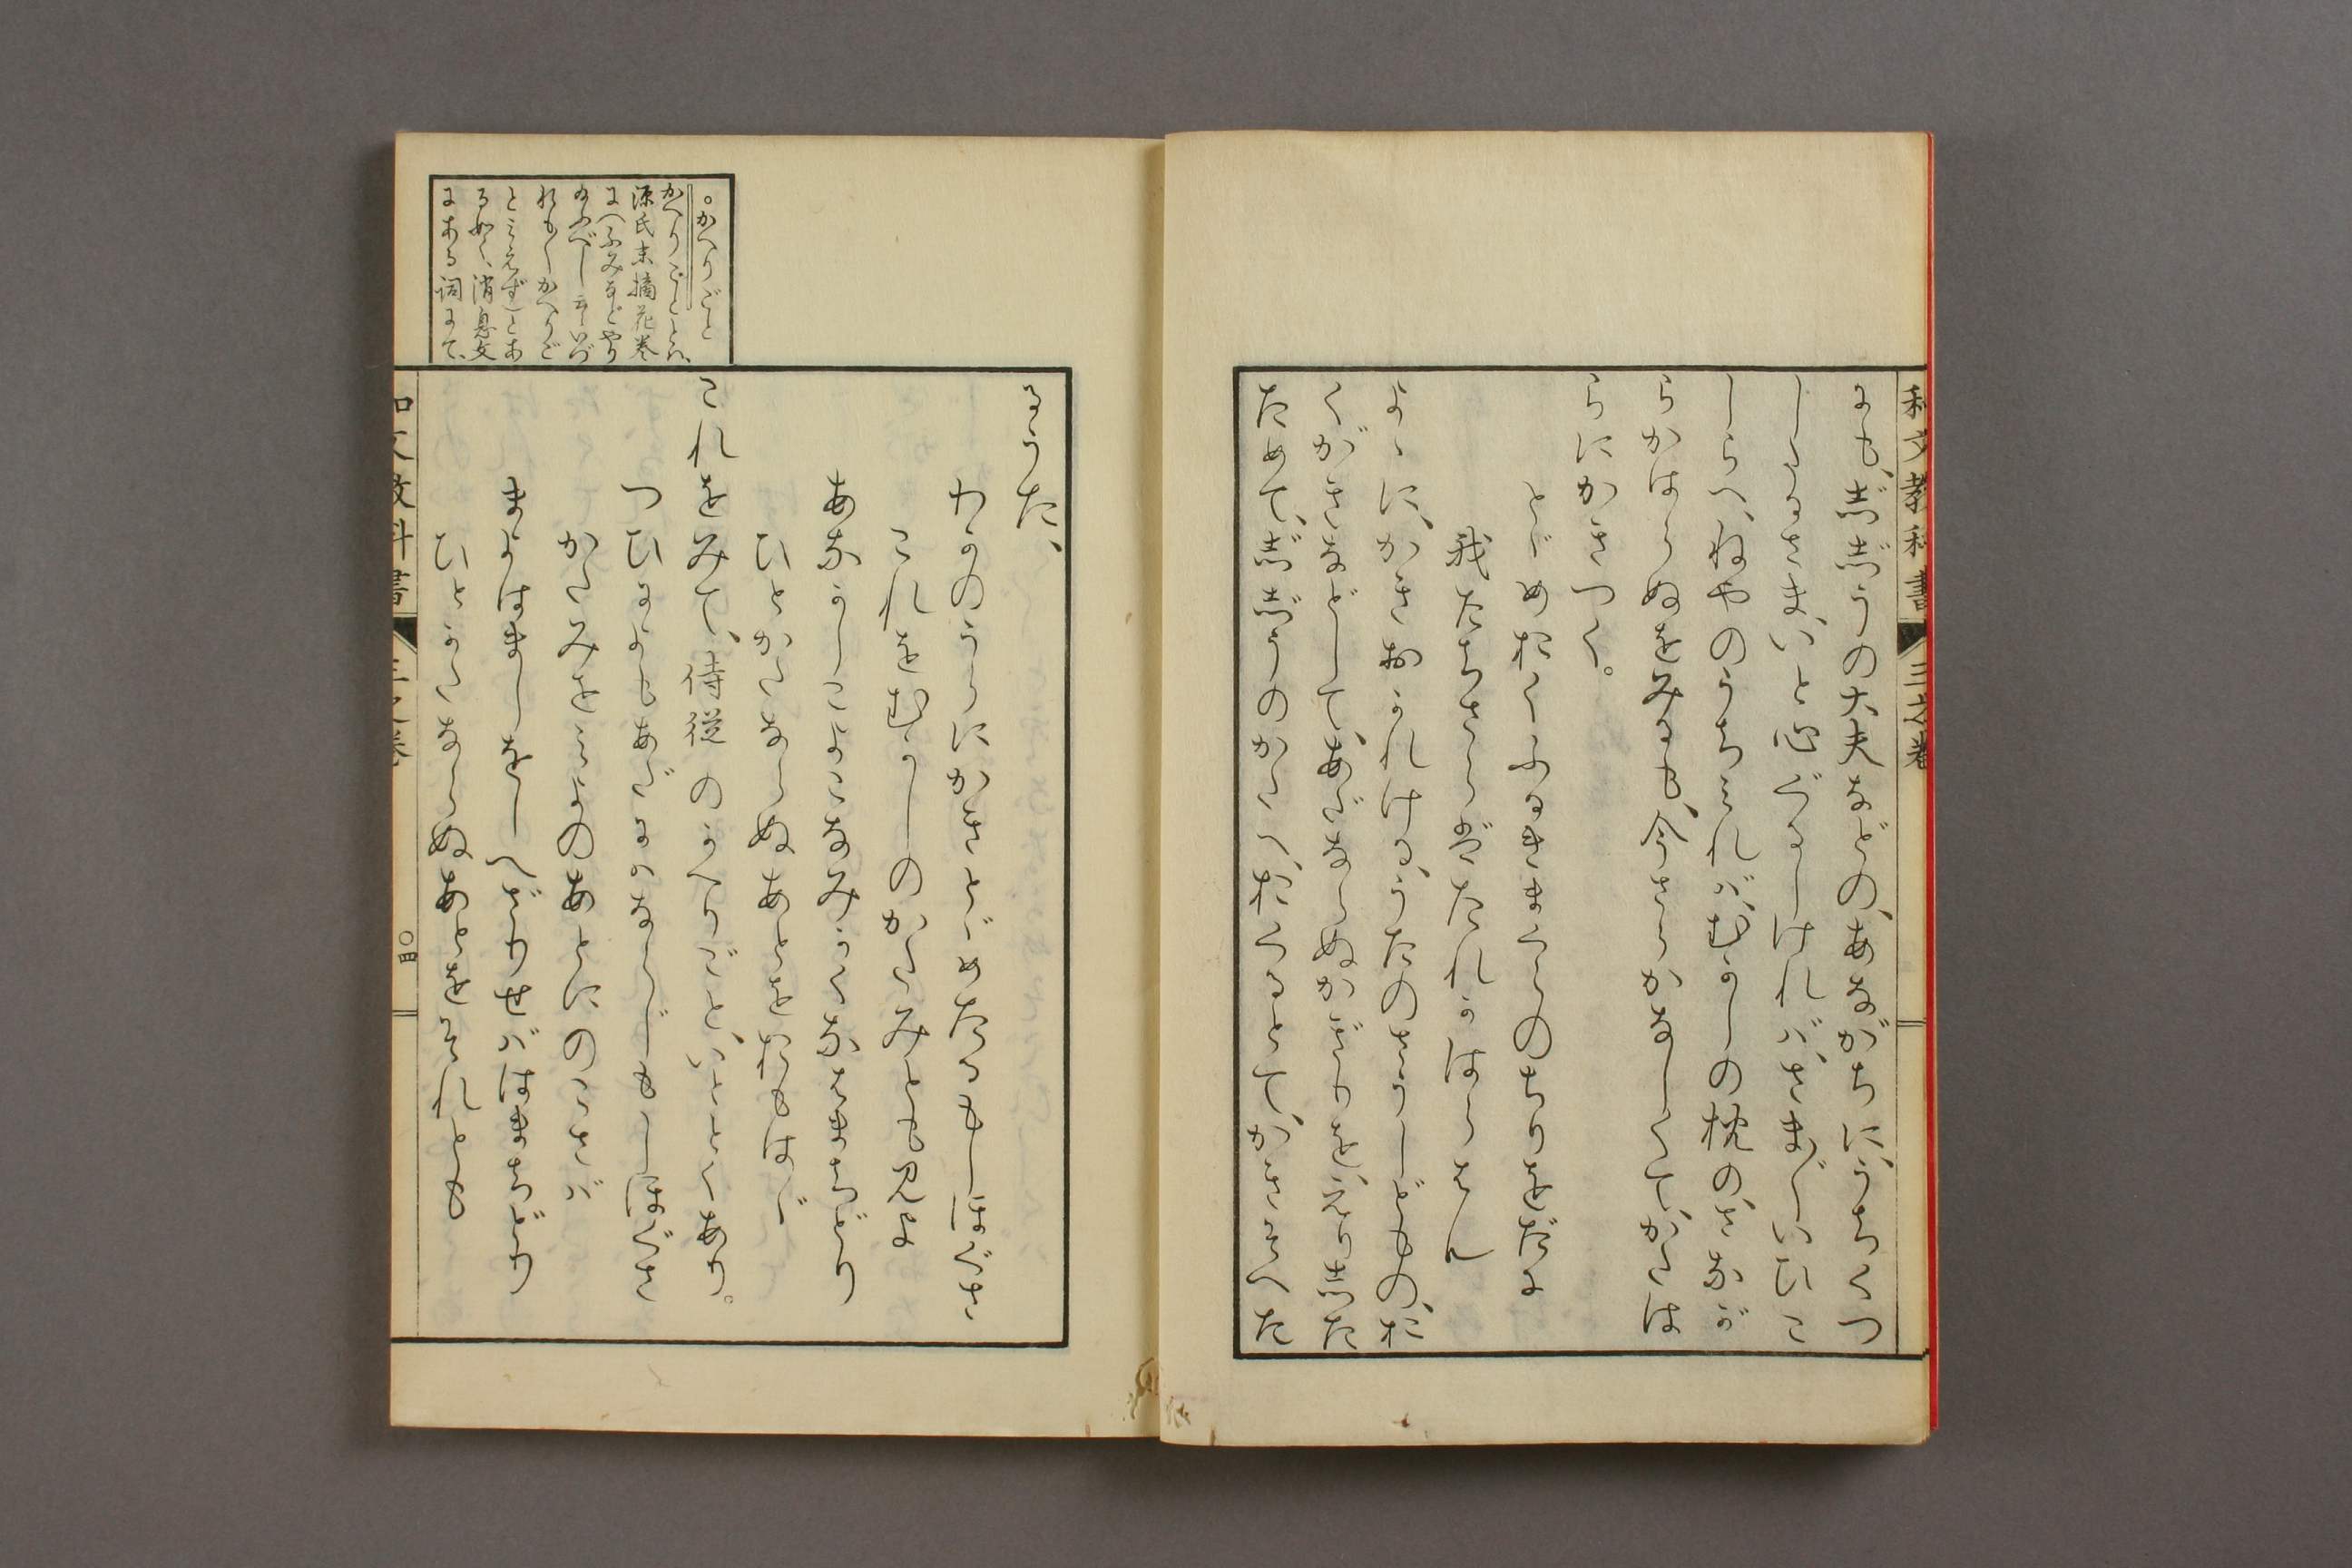 和文教科書 三之巻
にも、じじうの大夫などの、あながちに、うちくつ
したるさま、いと心ぐるしければ、さま〴〵いひこ
しらへ、ねやのうちみれば、むかしの枕の、さなが
らかはらぬをみるも、今さらかなしくて、かたは
らにかきつく。
とゞめおくふるきまくらのちりをだに
我たちさらばたれかはらはん
よゝに、かきおかれける、うたのさうしどもの、お
くがきなどして、あだならぬかぎりを、えりした
ためて、じじうのかたへ、おくるとて、かきそへた
るうた、
わかのうらにかきとゞめたるもしほぐさ
これをむかしのかたみとも見よ
あなかしこよこなみかくなはまちどり
ひとかたならぬあとをおもはゞ
これをみて、侍従のかへりごと、いととくあり。
つひによもあだにはならじもしほぐさ
かたみをみよのあとにのこさば
まよはましをしへざりせばはまちどり
ひとかたならぬあとをそれとも
。かへりごと
かへりごととは、
源氏末摘花巻
に(ふみなどやり
給ふべし云々いづ
れも〳〵かへりご
とみえず)とあ
る如く、消息文
にある詞にて、
和文教科書 三之巻 〇四